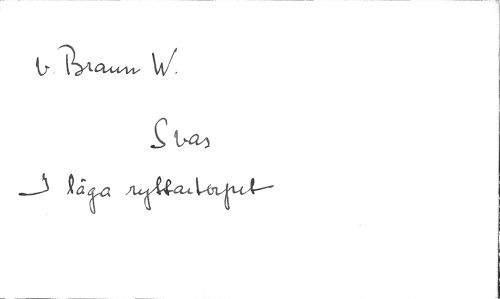 v. Braun W.
Svar
I låga ryttartorpet